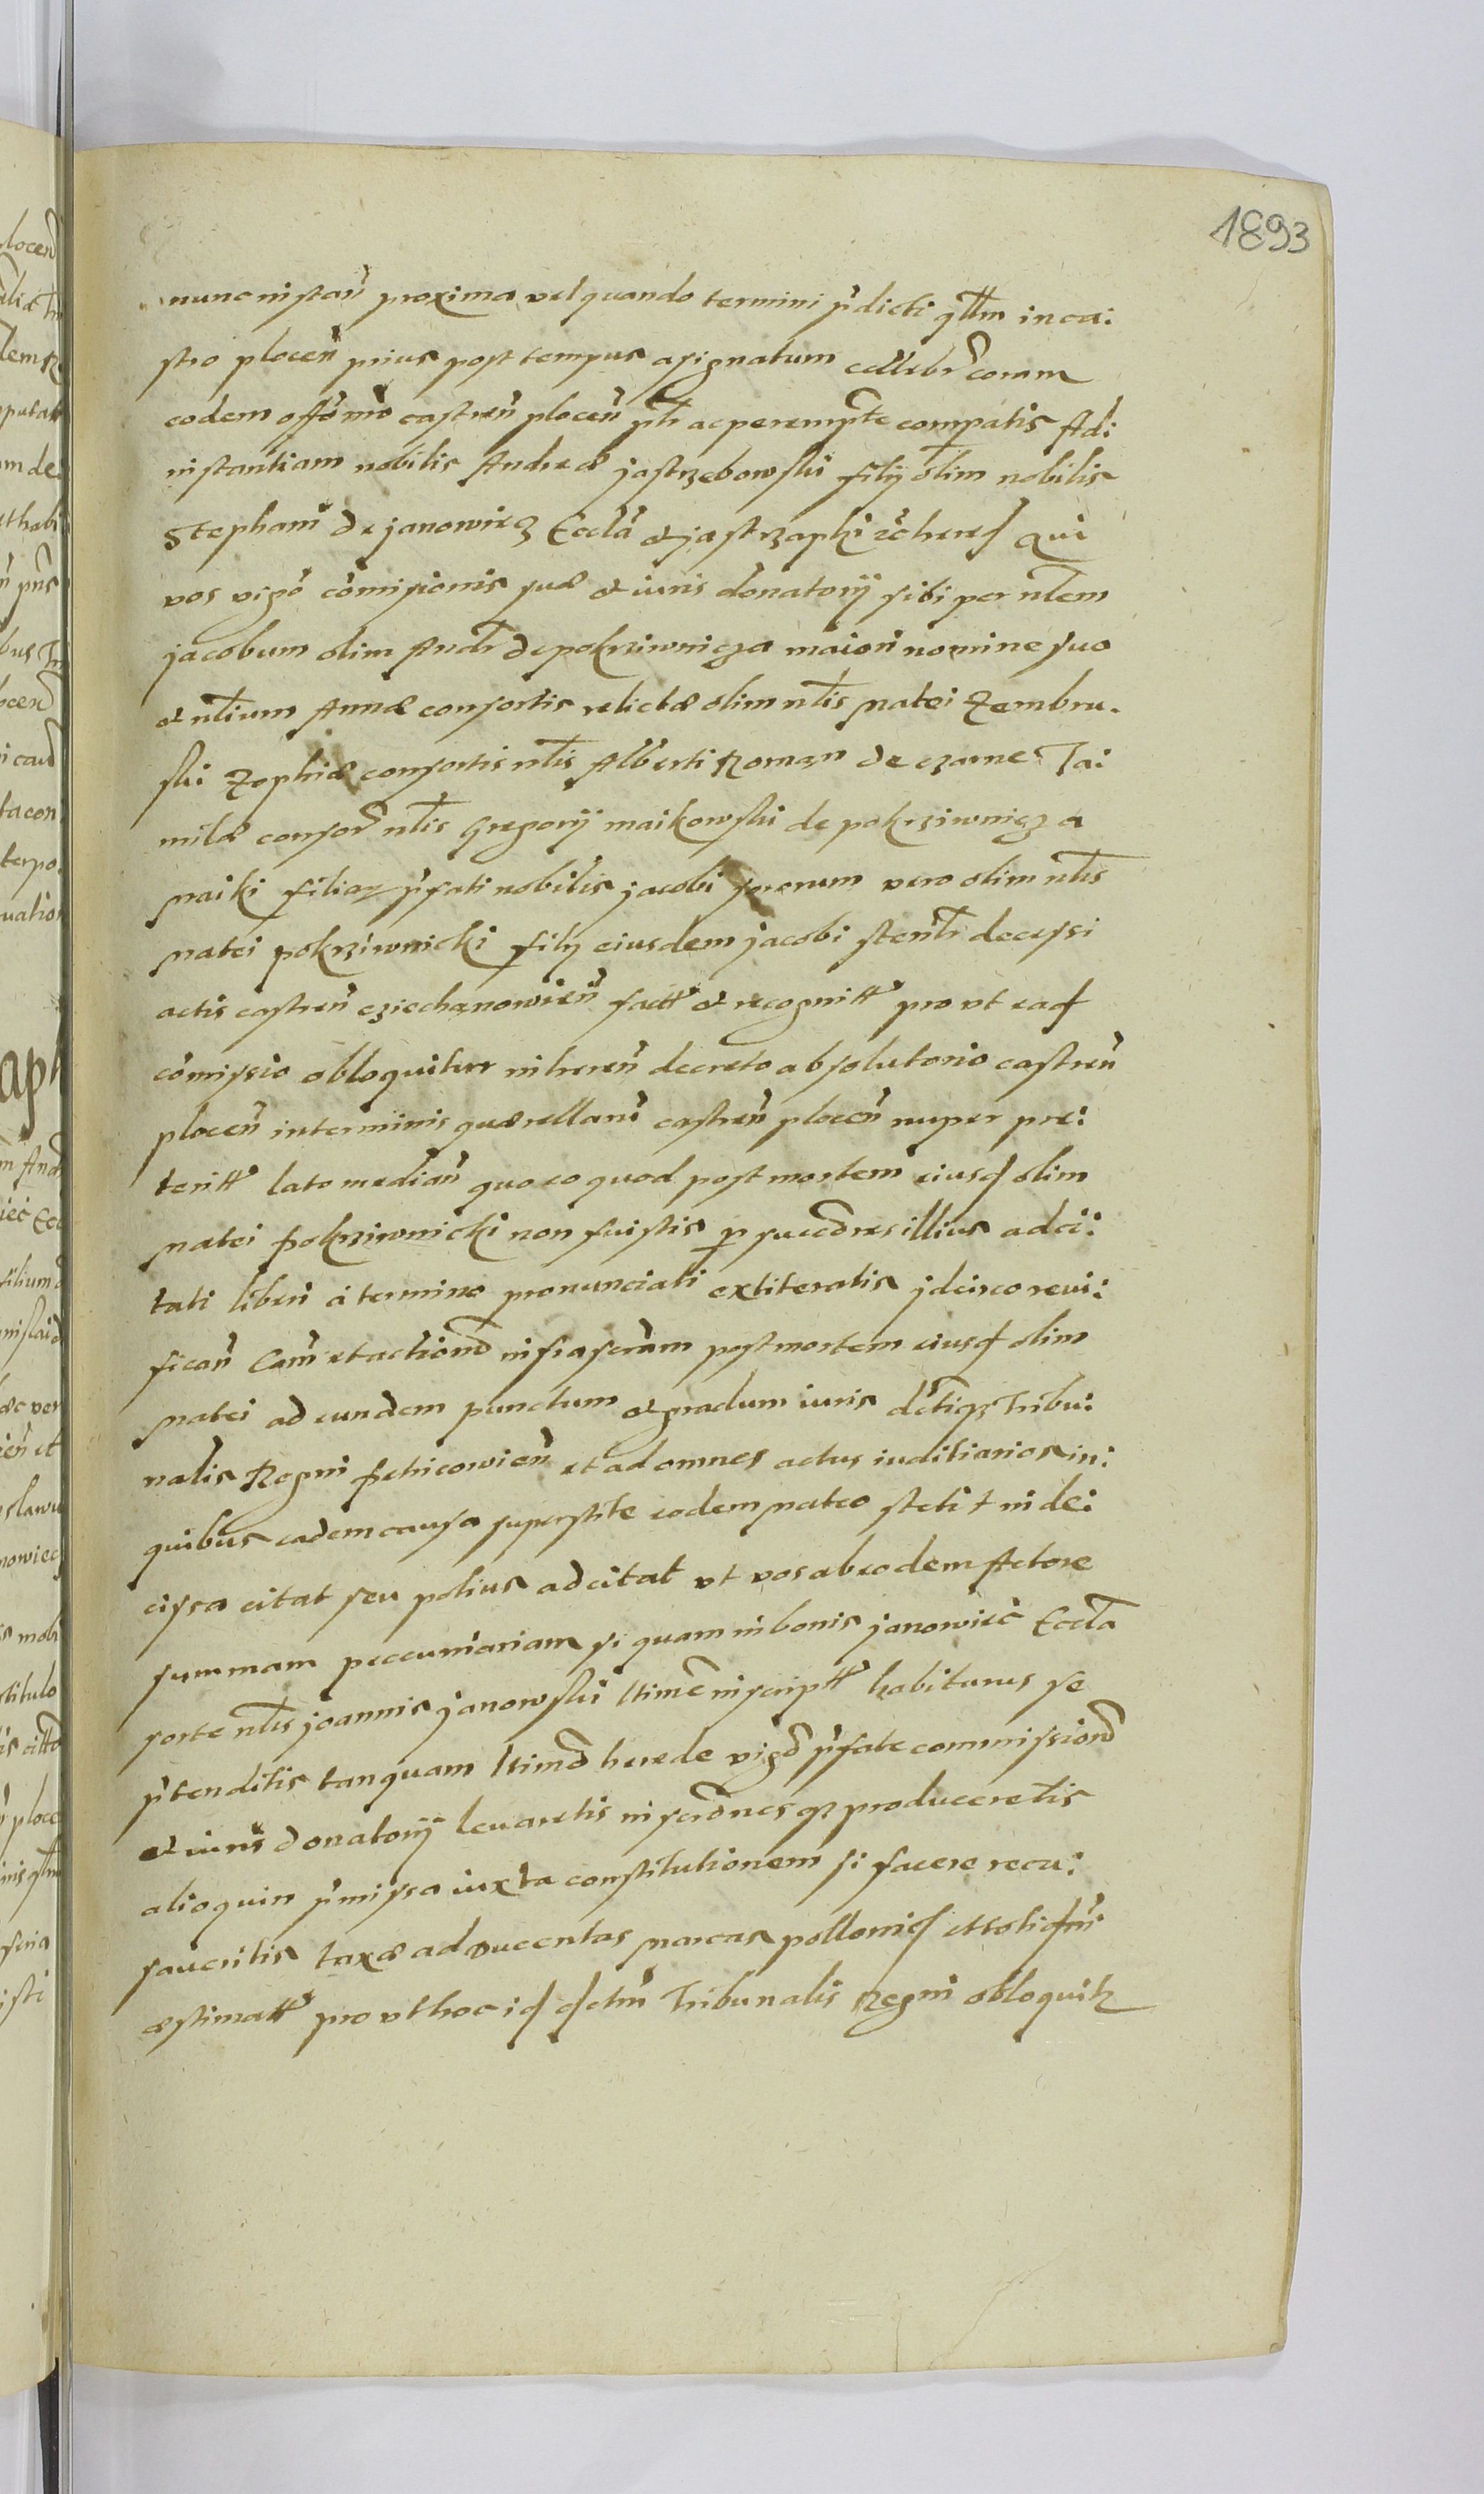 1893
nunc instan proxima vel quando termini pdicti qllm in ca:
stro plocen prius post tempus assignatum cellebr coram
eodem offo mo castren plocen plr ac perempte compatis Ad:
instantiam nobilis Andreæ jastrzebowski filij olim nobilis
Stephani de janowiecz Eccla & jastrzapki zc hered Qui
vos vigo comissionis suæ & iuris donatorij sibi per nlem
jacobum olim Andr de pokrziwnicza maiori nomine suo
& nlium Annæ consortis relictæ olim nlis Matei Zembru:
ski Zophiæ consortis nlis Alberti Roman de czarne Ja:
milæ consor nlis Gregorij maikowski de pokrziwnicza
maiki filiaz pfati nobilis jacobi sororum vero olim nlis
Matei pokrziwnicki filij eiusdem jacobi sterilr decessi
actis castren cziechanowien fact & recognitt pro ut ead
comissio obloquitur inheren decreto absolutorio castren
plocen in terminis quærellarum castren plocen nuper pre:
teritt lato median quo eo quod post mortem eiusd olim
Matei pokrziwnicki non fuistis p succedres illius adci:
tati liberi á termino pronunciati extiteratis jdcirco reui:
fican Cam et actione infrascram post mortem eiusd olim
Matei ad eundem punctum & gradum iuris dctiqz Tribu:
nalis Regni Petricowien et ad omnes actus iuditiarios in:
quibus eadem causa superstite eodem Mateo stetit inde:
cissa citat seu potius adcitat vt vos ab eodem Actore
summam peccuniariam si quam in bonis janowiec Eccla
sorte nlis joannis janowski ltime inscriptt habiturus se
ptenditis tanquam ltimo herede vigo pfate commissiono
& iuris donatorij leuaretis inscrones qz produceretis
alioquin pmissa iuxta constitutionem si facere recu:
saueritis taxæ ad ducentas marcas pollonid et tolidm
æstimatt pro vt hoc id dctm Tribunalis Regni obloquitz